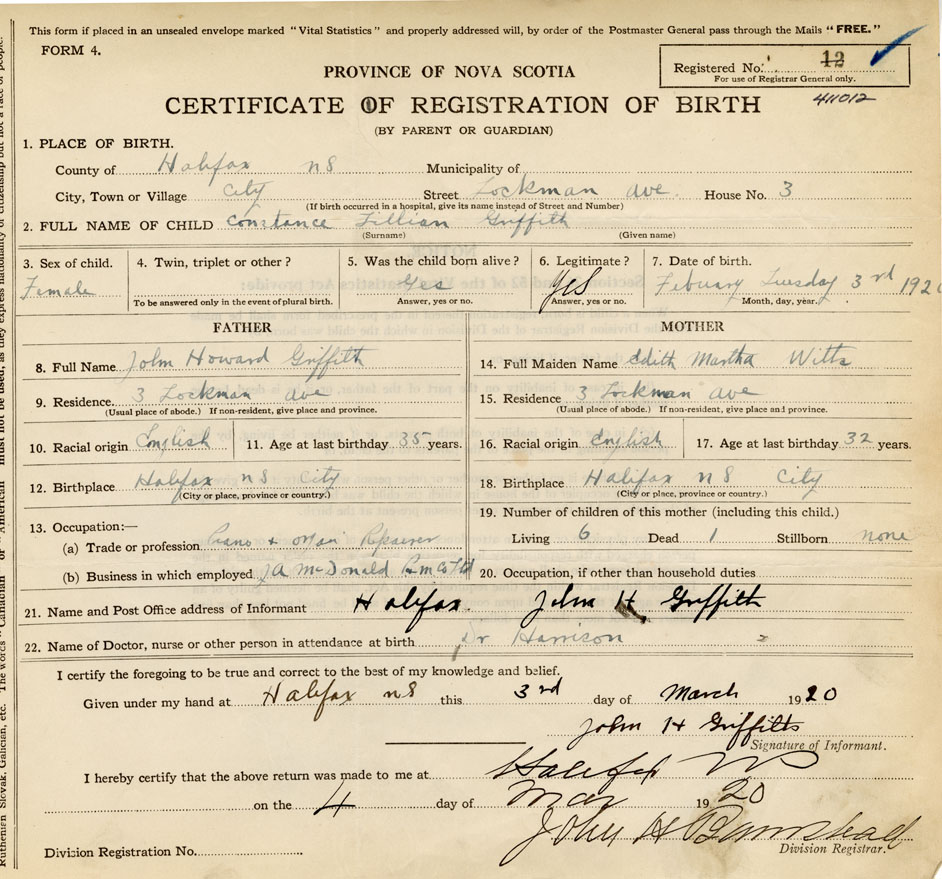 This form if placed in an unsealed envelope marked "Vital Statistics" and properly addressed will, by order of the Postmaster General pass through the Mails "FREE."
FORM 4.
Registered No. 12
For use of Registrar General only.
411012
PROVINCE OF NOVA SCOTIA
CERTIFICATE OF REGISTRATION OF BIRTH
(BY PARENT OR GUARDIAN)
1. PLACE OF BIRTH.
County of Halifax NS Municipality of
City, Town or Village City Street Lockman Ave. House No. 3
(If birth occurred in a hospital, give its name instead of Street and Number)
2. FULL NAME OF CHILD Constance Lillian Griffith
(Surname) (Given name)
3. Sex of child. 4. Twin, triplet or other ? 5. Was the child born alive ? 6. Legitimate ? 7. Date of birth.
Female Yes Yes Febuary Tuesday 3rd 192
To be answered only in the event of plural birth. Answer, yes or no. Answer, yes or no. Month, day, year.
FATHER
8. Full Name John Howard Griffith
9. Residence. 3 Lockman ave
(Usual place of abode.) If non-resident, give place and province.
10. Racial origin English 11. Age at last birthday 35 years.
12. Birthplace Halifax NS City
(City or place, province or country.)
13. Occupation:—
(a) Trade or profession Piano + organ Repairer
(b) Business in which employed JA McDonald
MOTHER
14. Full Maiden Name Edith Martha Witts
15. Residence 3 Lockman ave
(Usual place of abode.) If non-resident, give place and province.
16. Racial origin English 17. Age at last birthday 32 years.
18. Birthplace Halifax NS City
(City or place, province or country.)
19. Number of children of this mother (including this child.)
Living 6 Dead 1 Stillborn none
20. Occupation, if other than household duties
21. Name and Post Office address of Informant Halifax. John H. Griffith
22. Name of Doctor, nurse or other person in attendance at birth Dr Harrison
I certify the foregoing to be true and correct to the best of my knowledge and belief.
Given under my hand at Halifax NS this 3rd day of March 1920
John H Griffith
Signature of Informant.
I hereby certify that the above return was made to me at Halifax NS
on the 4 day of Mar 1920
John H Barnstead
Division Registration No. Division Registrar.